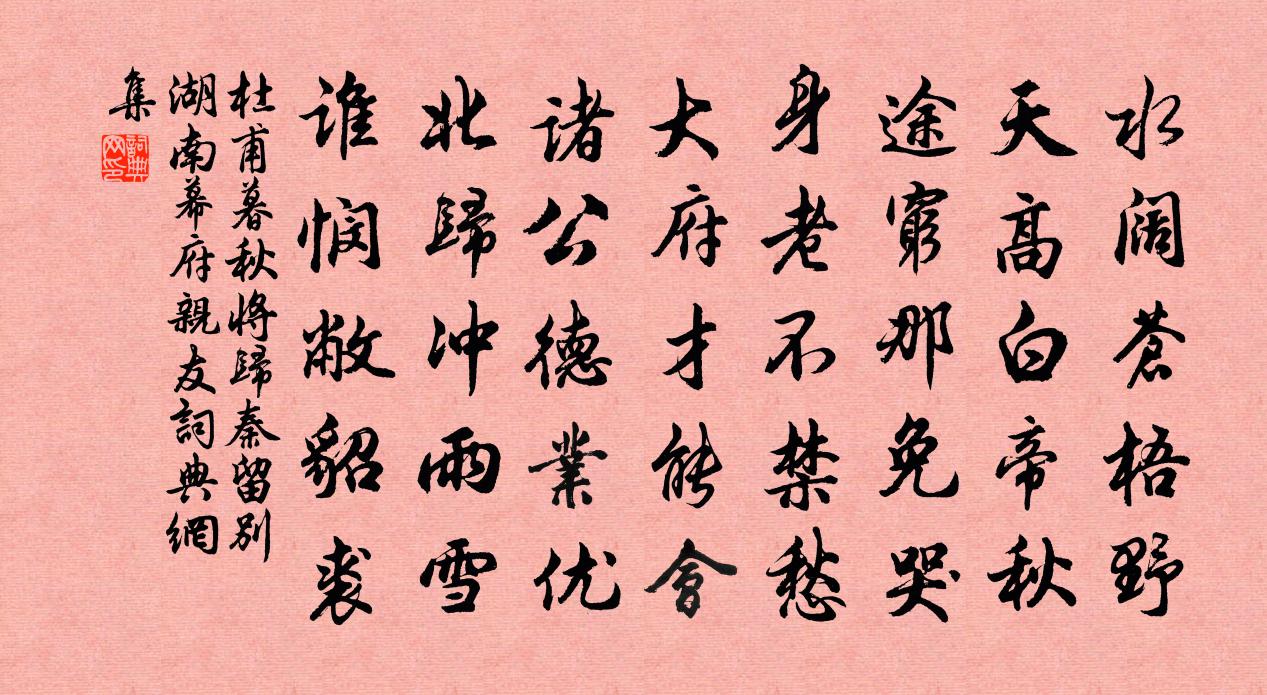 水阔蒼梧野
天高白帝秋
途窮那免哭
身老不禁愁
大府才能會
诸公德業优
北歸冲雨雪
谁悯敝貂裘
杜甫暮秋将歸秦留别
湖南幕府親友詞典網
集
詞典
网印